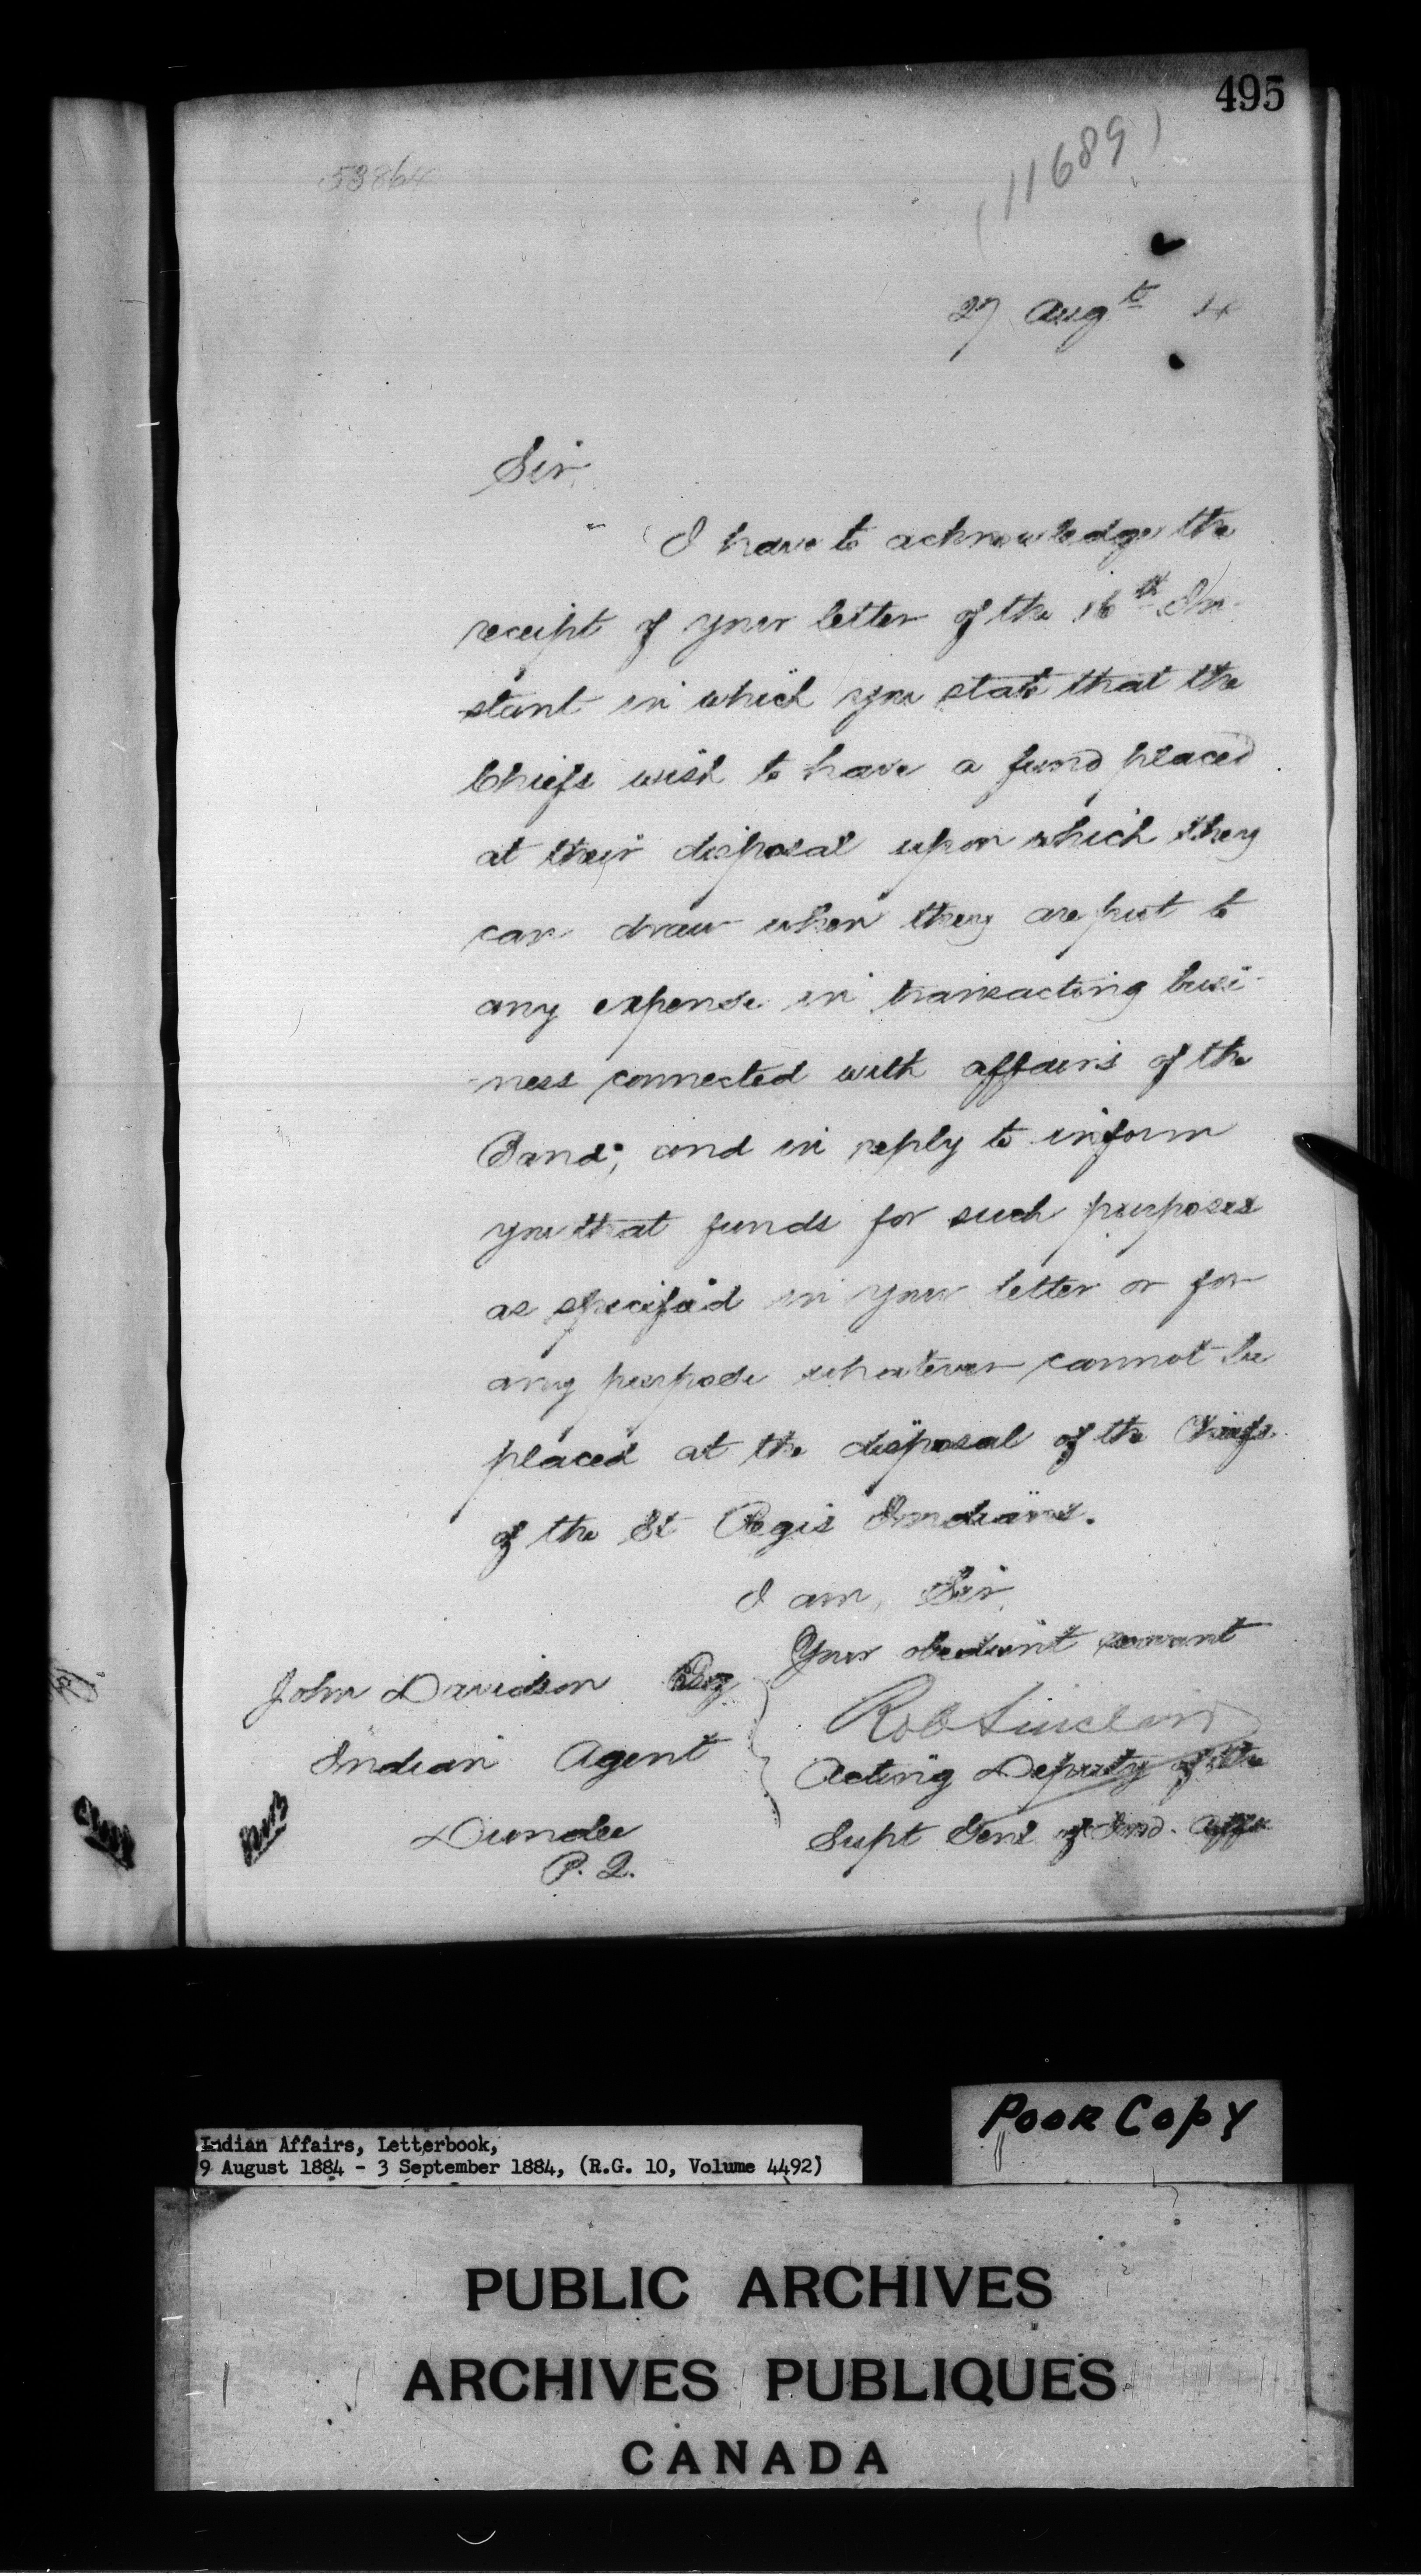 495
53864
(11689)
27 Augt 4
Sir,
I have to acknowledge the
receipt of your letter of the 16th In-
stant in which you state that the
Chiefs wish to have a fund placed
at their disposal upon which they
can draw when they are put to
any expense in transacting busi-
-ness connected with affairs of the
Band; and in reply to inform
you that funds for such purposes
as specified in your letter or for
any purpose whatever cannot be
placed at the disposal of the Chiefs
of the St Regis Indians.
I am, Sir,
Your obedient servant
Rob Sinclair
Acting Deputy of the
Supt Genl of Ind. Affrs
John Davidson Esq
Indian Agent
Dundee
P. Q.
Poor Copy
Indian Affairs, Letterbook,
9 August 1884 - 3 September 1884, (R.G. 10, Volume 4492)
PUBLIC ARCHIVES
ARCHIVES PUBLIQUES
CANADA